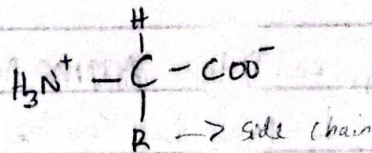 H
H₃N⁺ – C – COO⁻
R → side chain